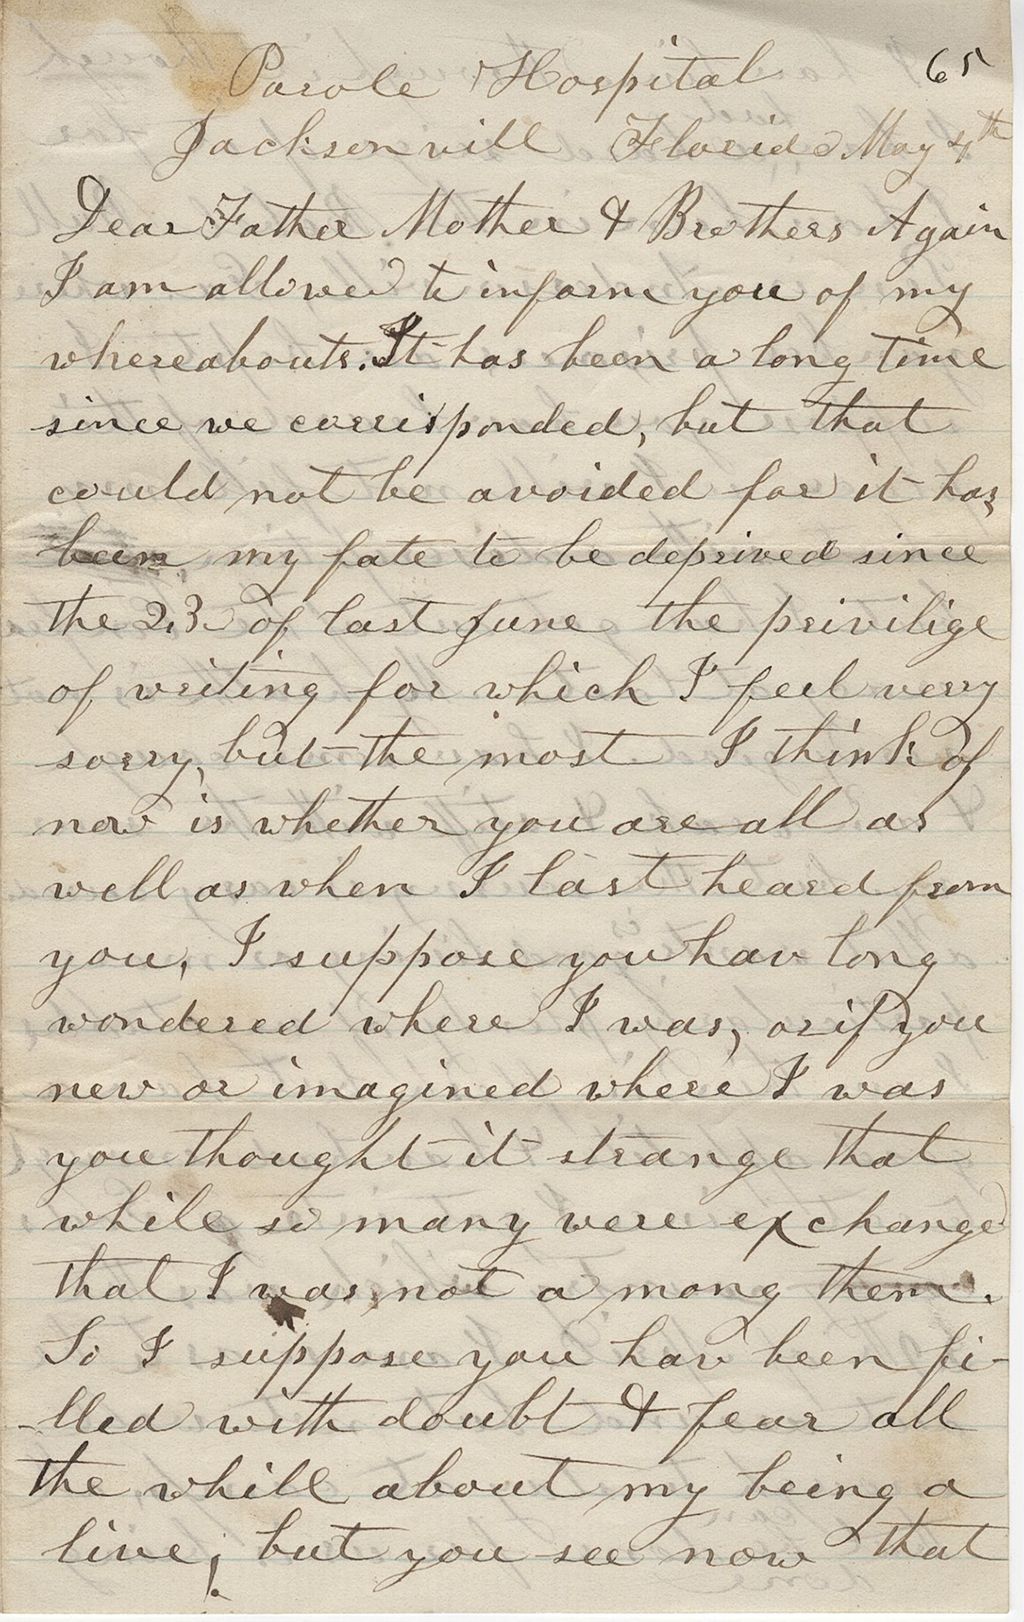 65
Parole Hospital
Jacksonvill Florida May 4th
Dear Father Mother & Brothers Again
I am allowed to inform you of my
whereabouts. It has been a long time
since we corrisponded, but that
could not be avoided for it has
been my fate to be deprived since
the 23 of last June the privilige
of writing for which I feel verry
sorry, but the most I think of
now is whether you are all as
well as when I last heard from
you, I suppose you hav long
wondered where I was, or if you
new or imagined where I was
you thought it strange that
while so many were exchanged
that I was not a mong them.
So I suppose you hav been fi-
-lled with doubt & fear all
the whill about my being a
live; but you see now that